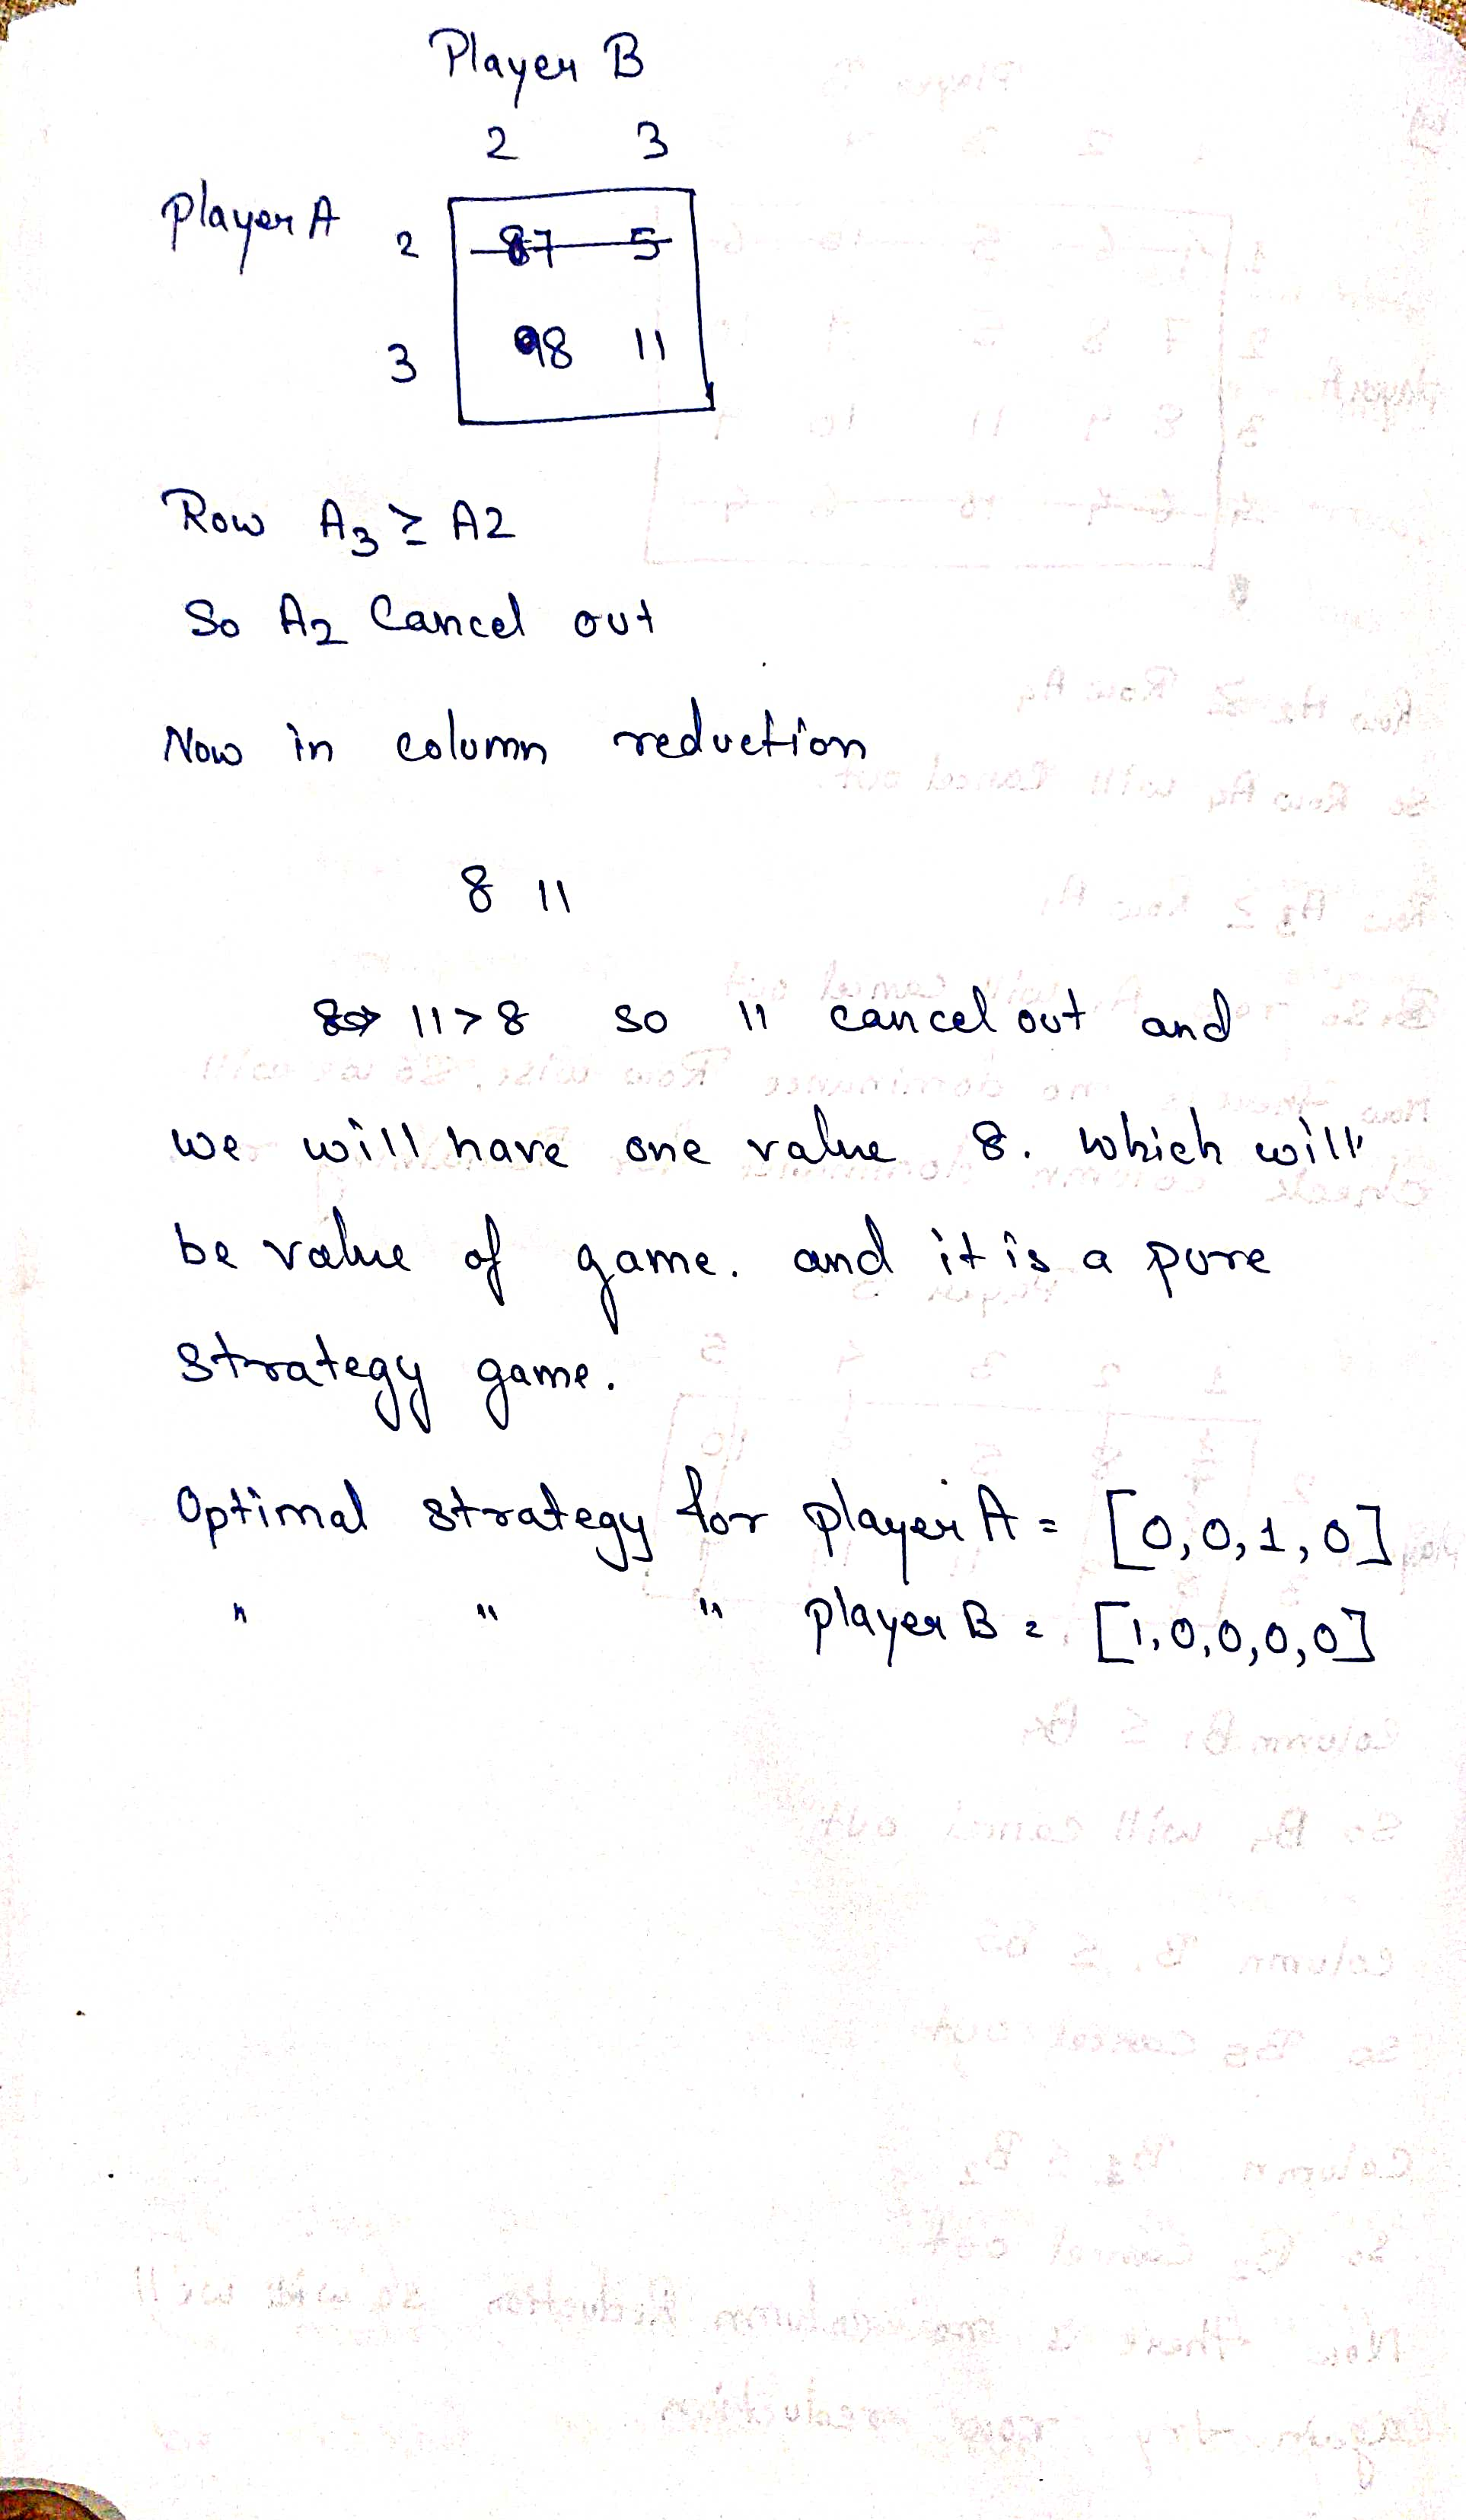 Player B
2 3
Player A
2 87 5
3 98 11
Row A3 ≥ A2
So A2 Cancel out
Now in column reduction
8 11
11>8 so 11 cancel out and
we will have one value 8. which will
be value of game. and it is a pure
strategy game.
Optimal strategy for player A = [0,0,1,0]
" " " player B = [1,0,0,0,0]